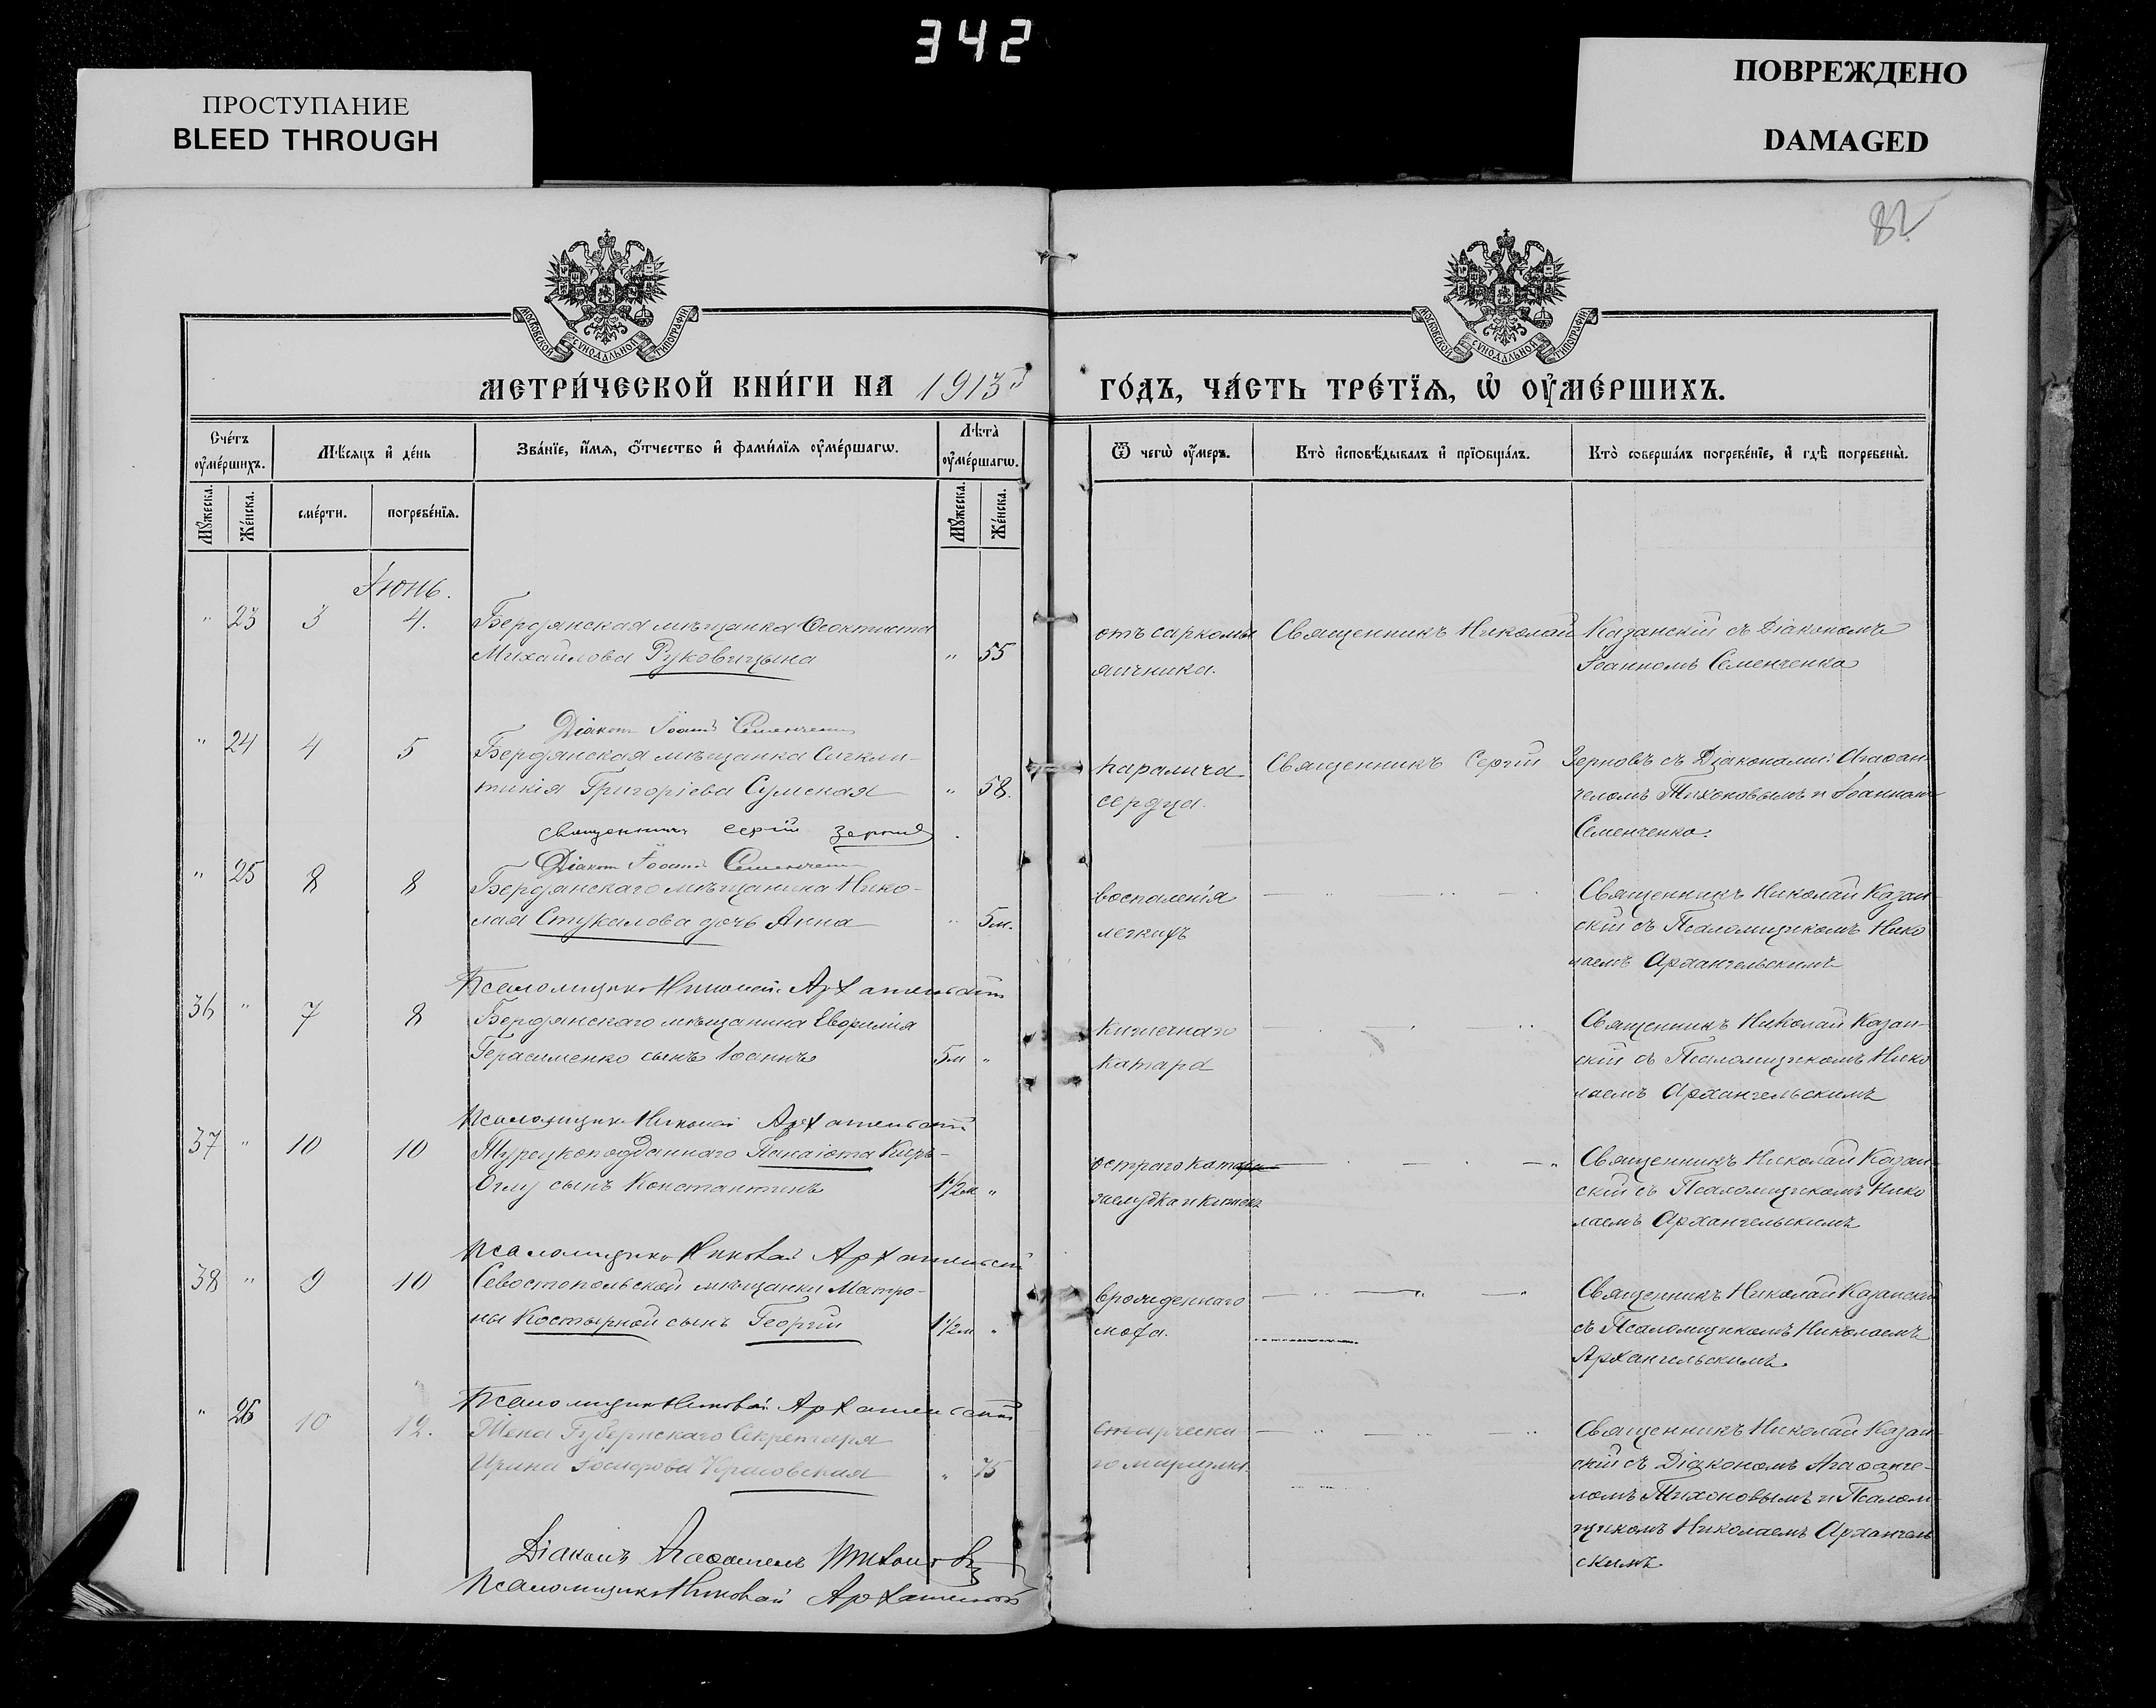 342
ПРОСТУПАНИЕ
BLEED THROUGH
ПОВРЕЖДЕНО
DAMAGED
82
МОСКОВСКОЙ СѴНОДАЛЬНОЙ ТИПОГРАФІИ
МОСКОВСКОЙ СѴНОДАЛЬНОЙ ТИПОГРАФІИ
МЕТРИ́ЧЕСКОЙ КНИ́ГИ НА 1913
ГО́ДЪ, ЧА́СТЬ ТРЕ́ТЇѦ, Ѡ҆ ОУ҆МЕ́РШИХЪ.
Сче́тъ оу҆ме́ршихъ.
Мѣ́сяцъ и҆ де́нь
Зва́нїе, и҆́мя, ѻ҆́тчество и҆ фами́лїя оу҆ме́ршагѡ.
Лѣта̀ оу҆ме́ршагѡ.
Ѿ чегѡ̀ оу҆́меръ.
Кто̀ и҆сповѣ́дывалъ и҆ прїѡбща́лъ.
Кто̀ соверша́лъ погребе́нїе, и҆ гдѣ̀ погребены̀.
Мꙋ́жеска.
Же́нска.
сме́рти.
погребе́нїя.
Мꙋ́жеска.
Же́нска.
Іюнь.
" 23 3 4. Бердянская мѣщанка Ѳеоктиста
Михайлова Руковицына " 55
отъ саркомы
яичника.
Священникъ Николай Казанскій съ Діакономъ
Іоанномъ Семенченко
Діаконъ Іоаннъ Семенченко
" 24 4 5 Бердянская мѣщанка Сигкли-
тикія Григоріева Сумская " 58.
паралича
сердца.
Священникъ Сергій Зерновъ съ Діаконами: Агаѳан-
геломъ Тихоновымъ и Іоанномъ
Семенченко.
Священникъ Сергій Зерновъ
Діаконъ Іоаннъ Семенченко
" 25 8 8 Бердянскаго мѣщанина Нико-
лая Стукалова дочь Анна " 5м.
воспаленія
легкихъ
Священникъ Николай Казан-
скій съ Псаломщикомъ Нико
лаемъ Архангельскимъ
Псаломщикъ Николай Архангельскій
36 " 7 8 Бердянскаго мѣщанина Евфимія
Герасименко сынъ Іоаннъ 5м "
Кишечнаго
катара
Священникъ Николай Казан-
скій съ Псаломщикомъ Нико
лаемъ Архангельскимъ
Псаломщикъ Николай Архангельскій
37 " 10 10 Турецкоподданнаго Панаіота Киръ-
Оглу сынъ Константинъ 1½м "
остраго катара
желудка и кишекъ
Священникъ Николай Казан-
скій съ Псаломщикомъ Нико
лаемъ Архангельскимъ
Псаломщикъ Николай Архангельскій
38 " 9 10 Севостопольской мѣщанки Матро-
ны Костырной сынъ Георгій 1½м "
врожденнаго
Священникъ Николай Казанскій
съ Псаломщикомъ Николаемъ
Архангельскимъ.
Псаломщикъ Николай Архангельскій
" 26 10 12. Жена Губернскаго Секретаря
Ирина Іосифова 75
старческа-
го маразма.
Священникъ Николай Казан-
скій съ Діакономъ Агаѳанге-
ломъ Тихоновымъ и Псалом-
щикомъ Николаемъ Архангель
скимъ
Діаконъ Агаѳангелъ Тихоновъ
Псаломщикъ Николай Архангельскій